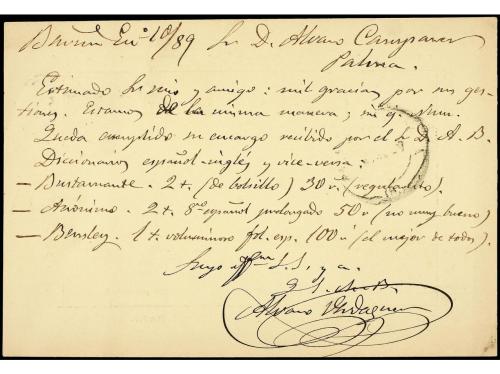 En.º 10/89 Sr. D. Alvaro Campaner
Palma.
Estimado Sr. mio y amigo: mil gracias por sus ges-
tiones. Estamos de la misma manera;
Queda cumplido su encargo recibido por el Sr. D. A. B.
Diccionarios español-inglés y vice-versa.
— Bustamante. 2 t. (de bolsillo) 30 r. (regularcito).
— Anónimo. 2 t. 8º español prolongado 50 r (no muy bueno)
— Bensley. 1 t. voluminoso fol. esp. 100 r (el mejor de todos).
Suyo affmo S. S. y a.
q. s. m. B.
Alvaro Verdaguer